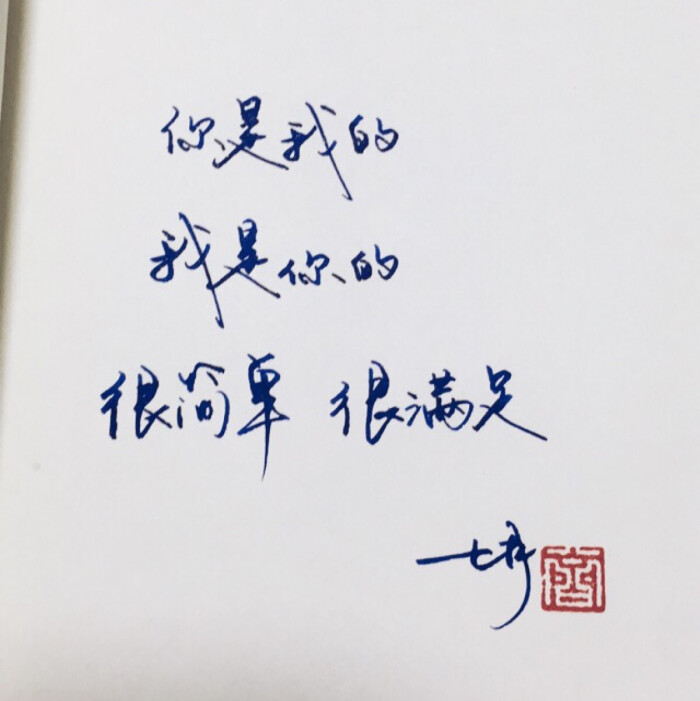 你是我的
我是你的
很简单 很满足